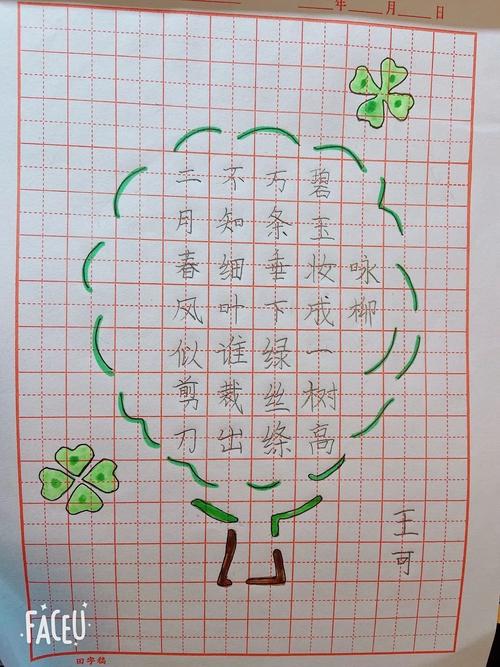 年 月 日
咏柳
碧玉妆成一树高
万条垂下绿丝绦
不知细叶谁裁出
二月春风似剪刀
王可
FACEU
田字稿